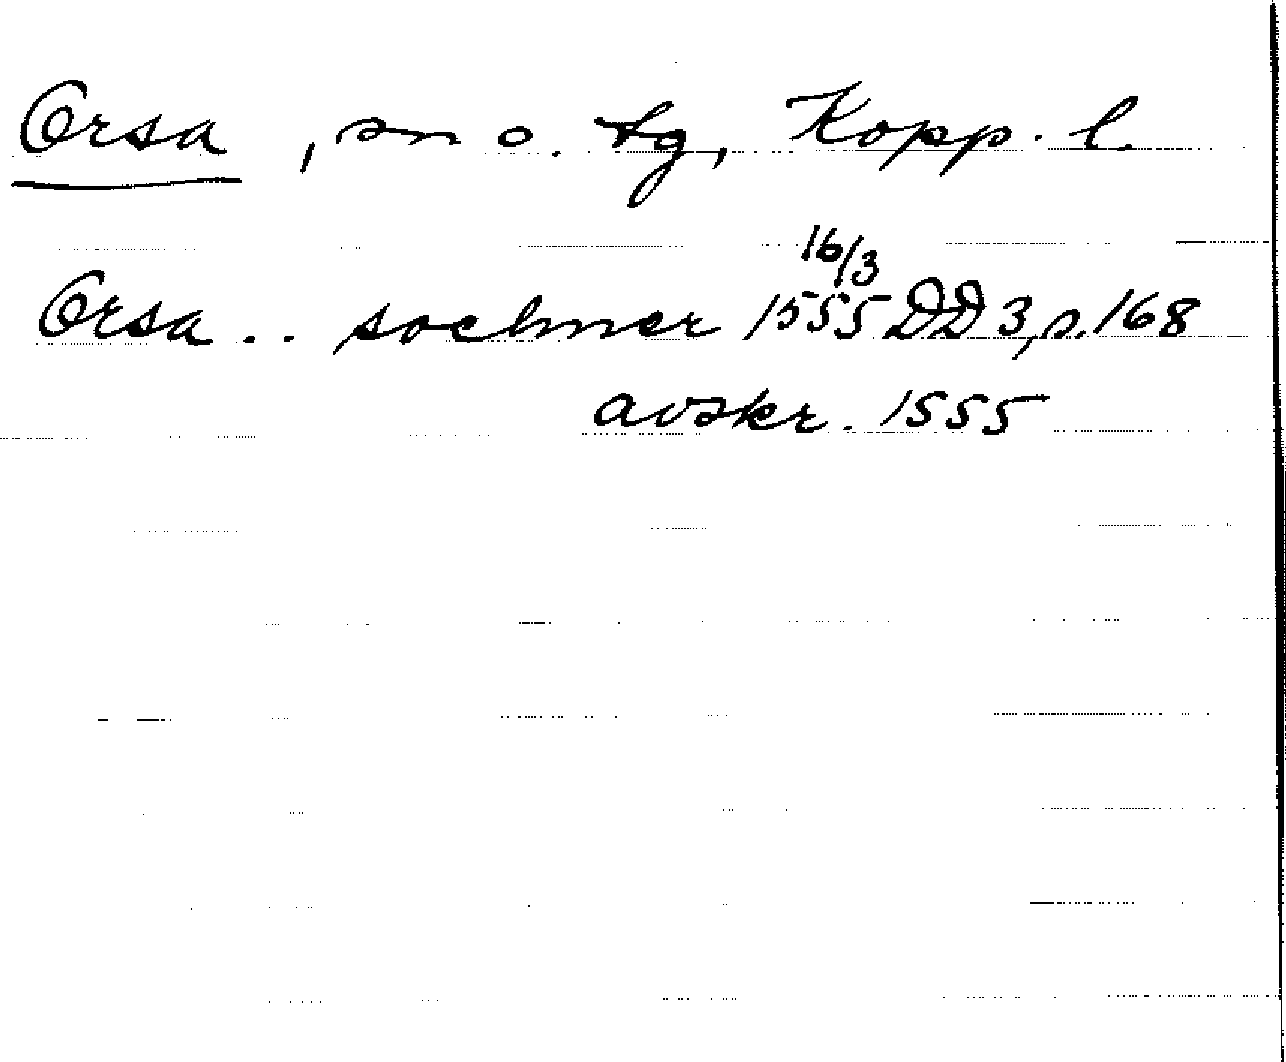 Orsa, sn o. tg, Kopp. l.
16/3
Orsa.. sochner 1555 DD 3, s. 168
avskr. 1555